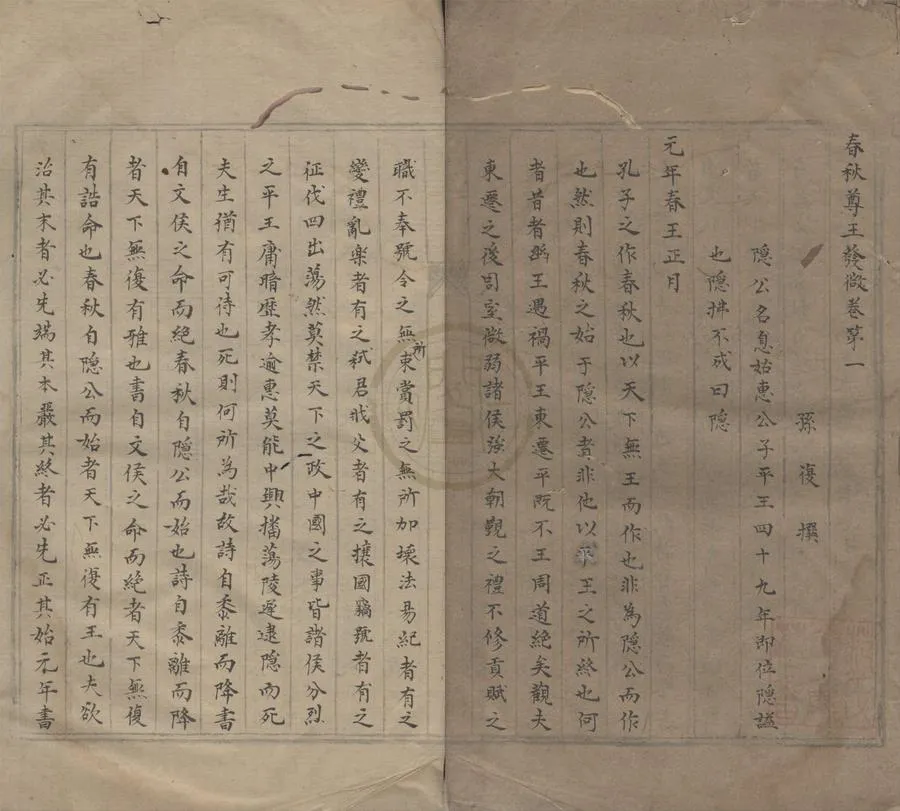 春秋尊王發微卷第一
孫復撰
隱公名息始惠公子平王四十九年即位隱謚
也隱拂不成曰隱
元年春王正月
孔子之作春秋也以天下無王而作也非為隱公而作
也然則春秋之始于隱公者非他以平王之所終也何
者昔者幽王遇禍平王東遷平既不王周道絶矣觀夫
東遷之後周室微弱諸侯強大朝覲之禮不修貢賦之
職不奉號令之無所束賞罰之無所加壊法易紀者有之
變禮亂樂者有之弑君戕父者有之攘國竊號者有之
征伐四出蕩然莫禁天下之政中國之事皆諸侯分烈
之平王庸暗歷孝逾惠莫能中興播蕩陵遲逮隱而死
夫生猶有可待也死則何所為哉故詩自黍離而降書
自文侯之命而絶春秋自隱公而始也詩自黍離而降
者天下無復有雅也書自文侯之命而絶者天下無復
有誥命也春秋自隱公而始者天下無復有王也夫欲
治其末者必先端其本嚴其終者必先正其始元年書